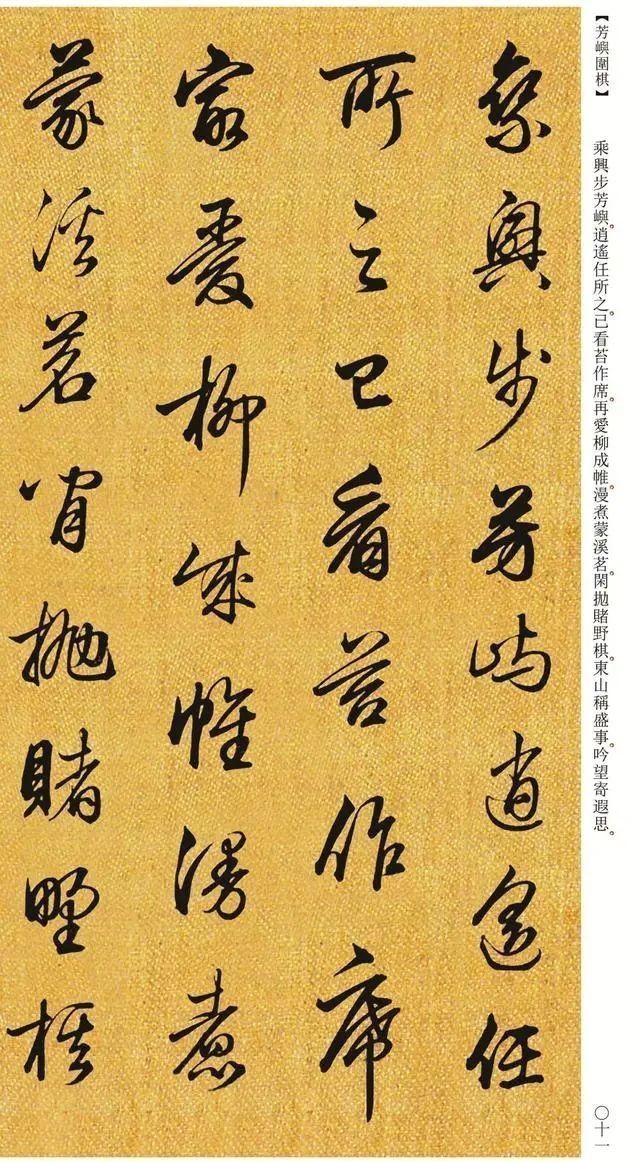 【芳嶼圍棋】 乘興步芳嶼。逍遙任所之。已看苔作席。再愛柳成帷。漫煮蒙溪茗。閑拋賭野棋。東山稱盛事。吟望寄遐思。
〇十一
乘興步芳嶼逍遙任
所之已看苔作席
最愛柳成帷漫煮
蒙溪茗閒拋賭野棋